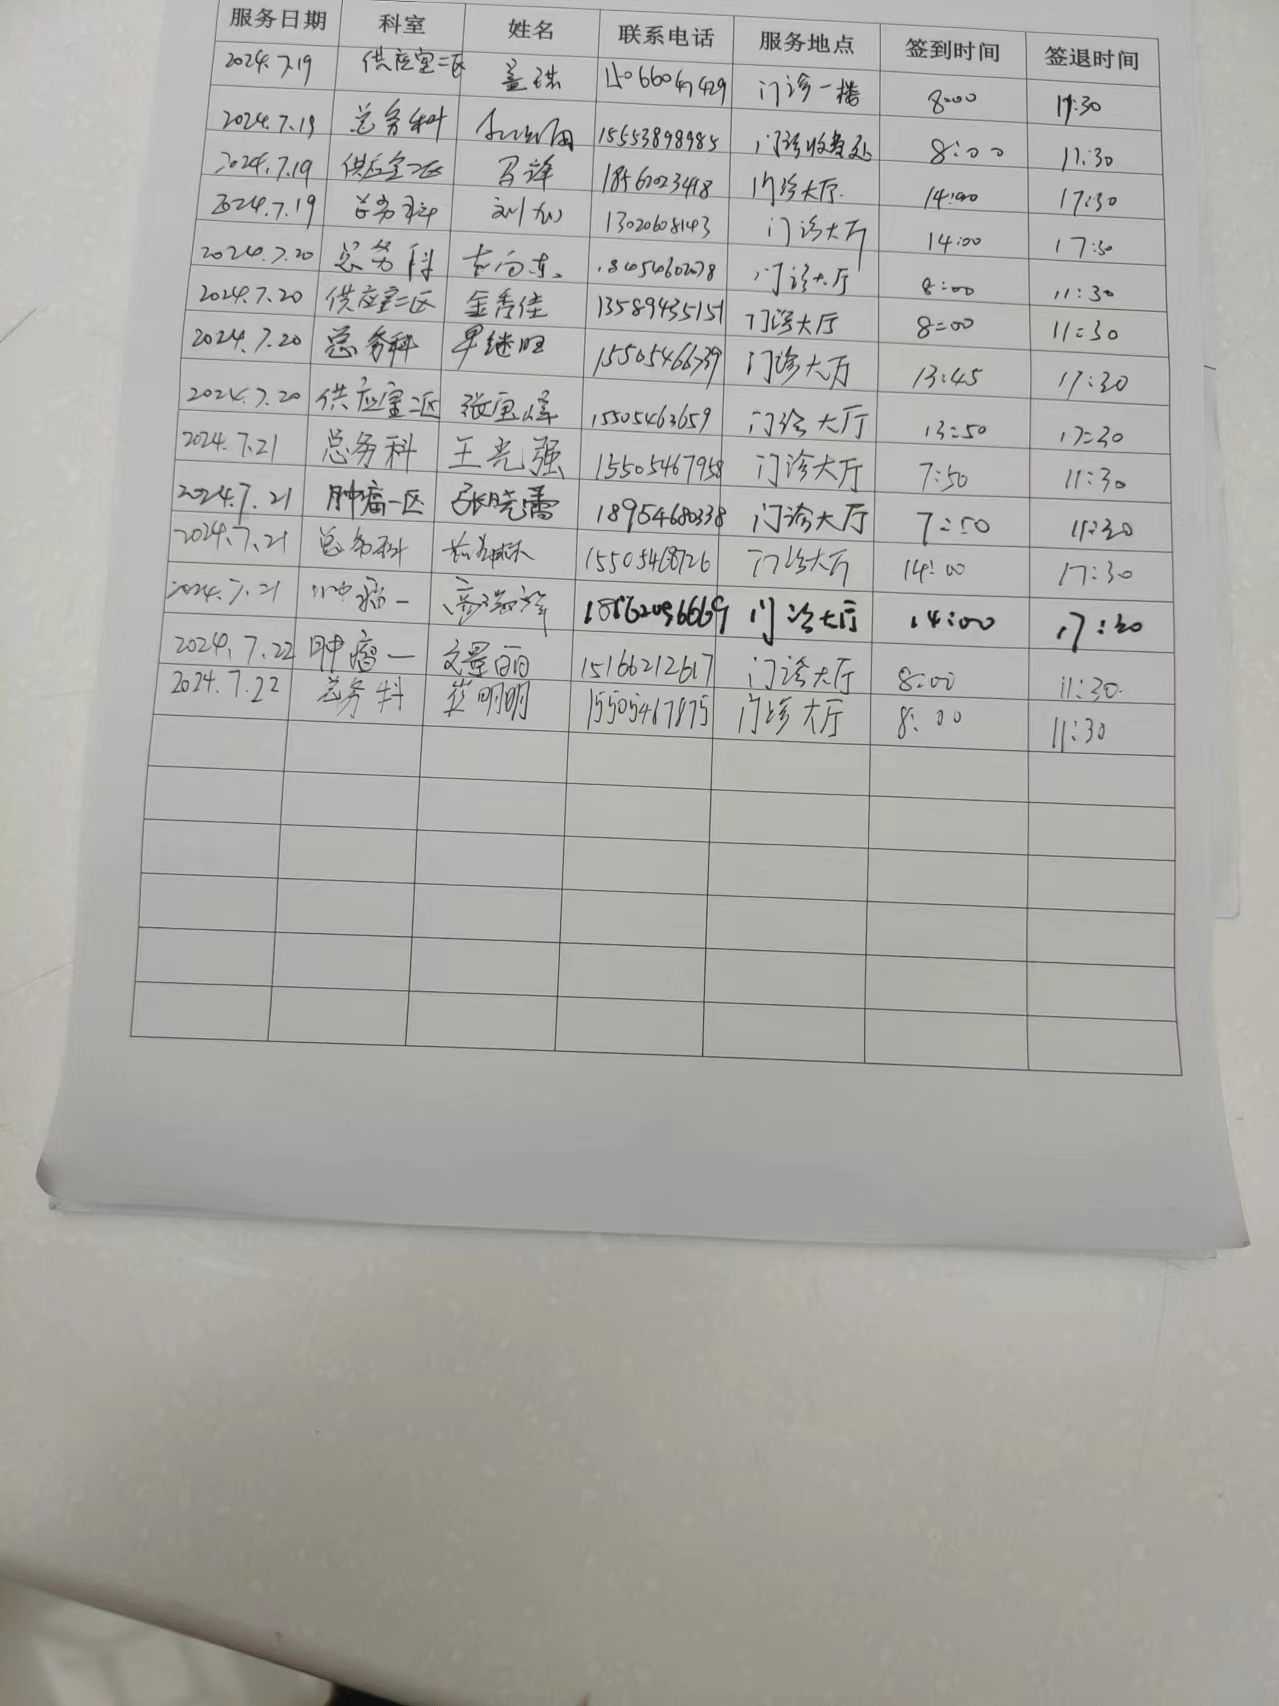 服务日期 科室 姓名 联系电话 服务地点 签到时间 签退时间
2024.7.19 供应室二区 盖琪 15066047429 门诊一楼 8:00 11:30
2024.7.19 总务科 15553898985 门诊收费处 8:00 11:30
2024.7.19 供应室二区 马锋 18561023418 门诊大厅 14:00 17:30
2024.7.19 总务科 13020608143 门诊大厅 14:00 17:30
2024.7.20 总务科 门诊大厅 8:00 11:30
2024.7.20 供应室二区 金秀佳 13589435151 门诊大厅 8:00 11:30
2024.7.20 总务科 门诊大厅 13:45 17:30
2024.7.20 供应室二区 15505463659 门诊大厅 13:50 17:30
2024.7.21 总务科 王光强 15505467958 门诊大厅 7:50 11:30
2024.7.21 肿瘤一区 张晓蕾 18954680338 门诊大厅 7:50 11:30
2024.7.21 总务科 15505468726 门诊大厅 14:00 17:30
2024.7.21 肿瘤一 门诊大厅 14:00 17:30
2024.7.22 肿瘤一 文景丽 15166212617 门诊大厅 8:00 11:30
2024.7.22 总务科 15505467875 门诊大厅 8:00 11:30